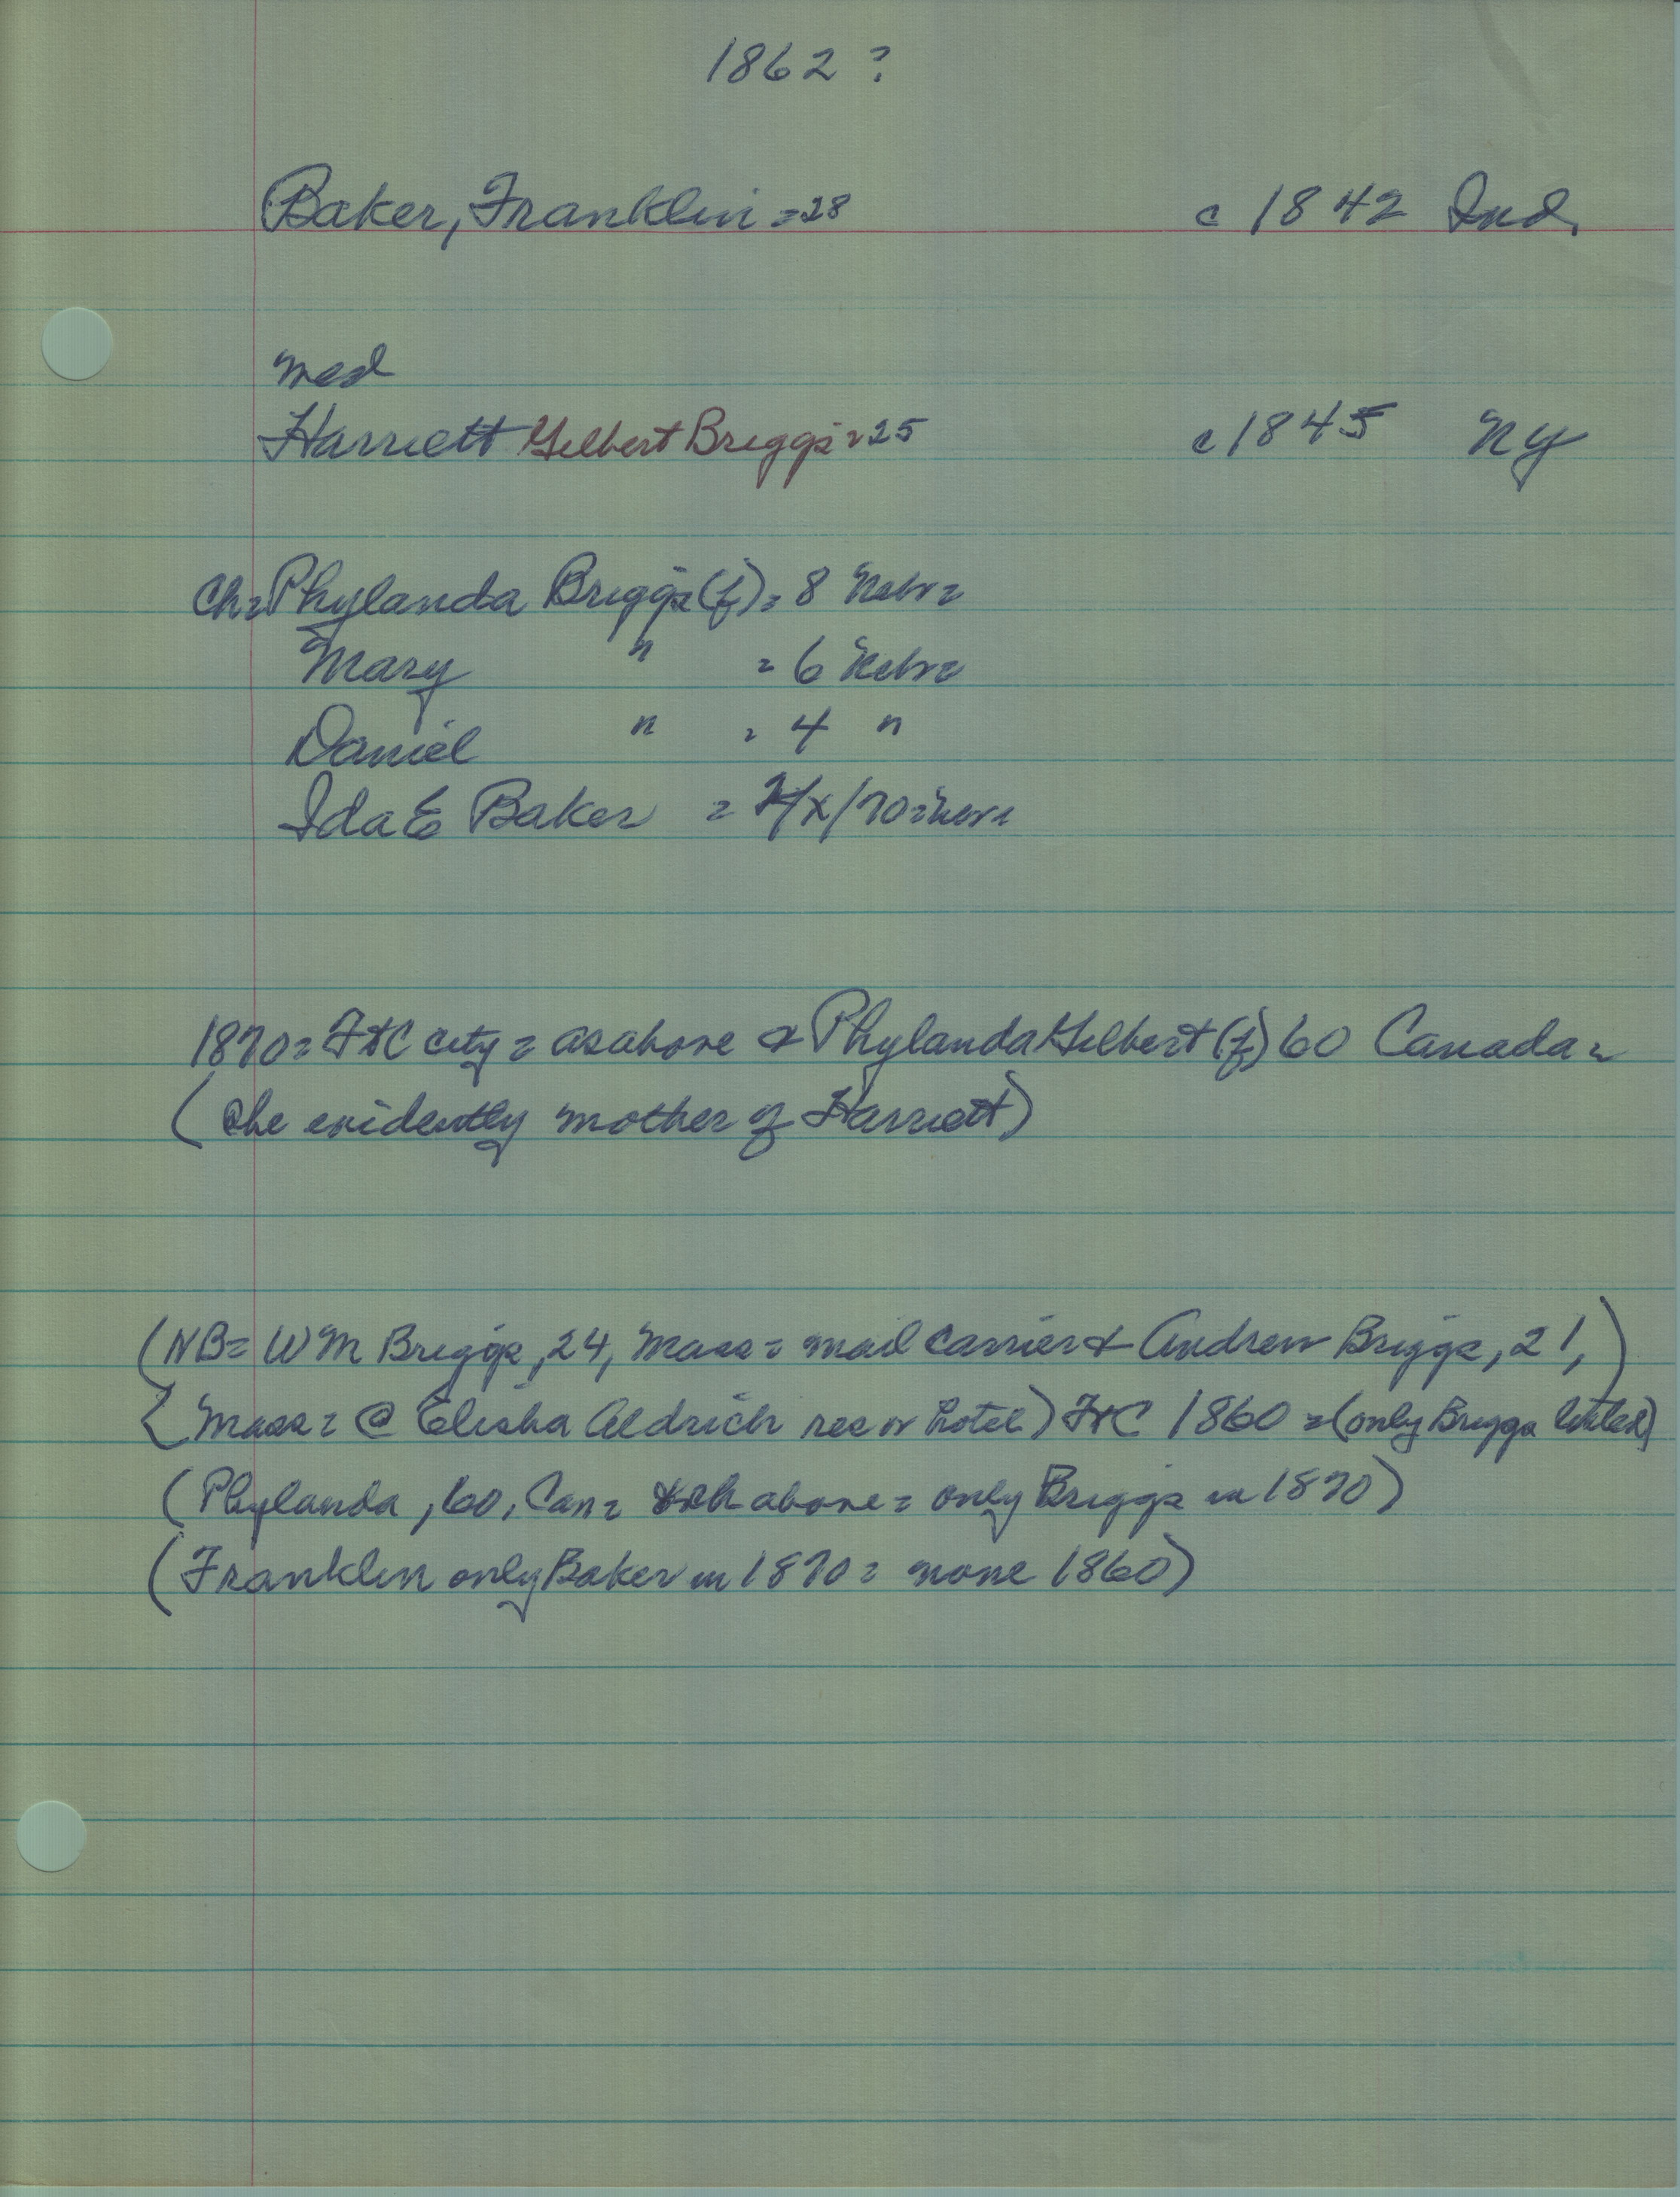 1862 ?
Baker, Franklin = 28 c 1842 Ind.
med
Harriett Gilbert Briggs = 25 c 1845 NY
Ch = Phylanda Briggs (f) = 8 Nebr =
Mary " = 6 Nebr =
Daniel " = 4 "
Ida E Baker = /70 =
1870 = FtC city = as above & Phylanda Gilbert (f) 60 Canada =
(she evidently mother of Harriett)
(NB = WM Briggs, 24, Mass = mail carrier & Andrew Briggs, 21,)
{ Mass = @ Elisha Aldrich res or hotel) FtC 1860 = (only Briggs listed)
(Phylanda, 60, Can = above = only Briggs in 1870)
(Franklin only Baker in 1870 = none 1860)